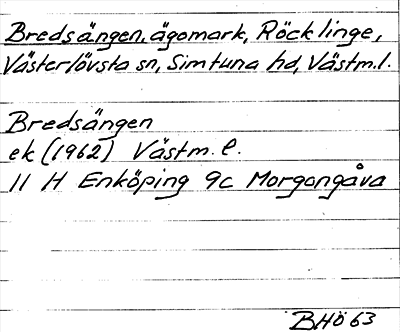 Bredsängen, ägomark, Röcklinge,
Västerlövsta sn, Simtuna hd, Västm.l.
Bredsängen
ek (1962) Västm. l.
11 H Enköping 9c Morgongåva
BHö 63